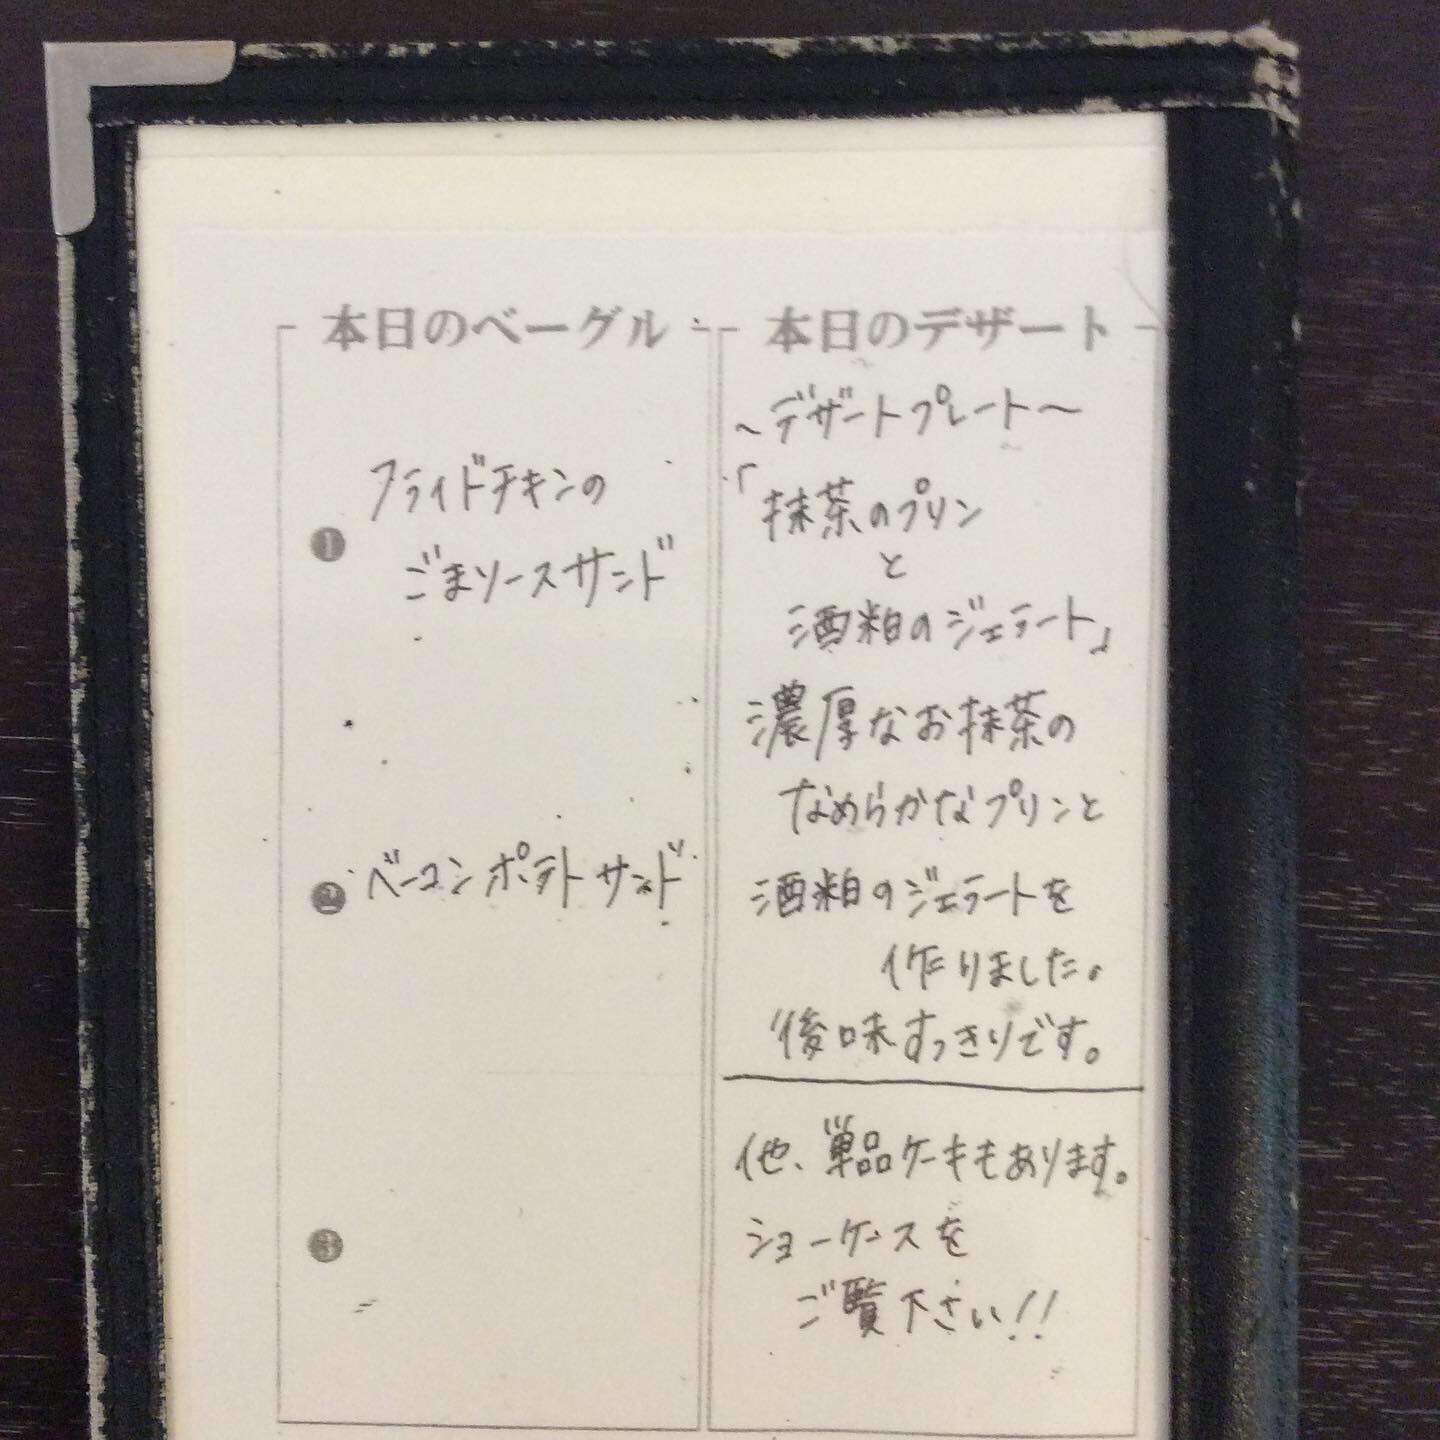 本日のベーグル
❶ フライドチキンの
ごまソースサンド
❷ ベーコンポテトサンド
❸
本日のデザート
～デザートプレート～
「抹茶のプリン
と
酒粕のジェラート」
濃厚なお抹茶の
なめらかなプリンと
酒粕のジェラートを
作りました。
後味すっきりです。
他、単品ケーキもあります。
ショーケースを
ご覧下さい!!